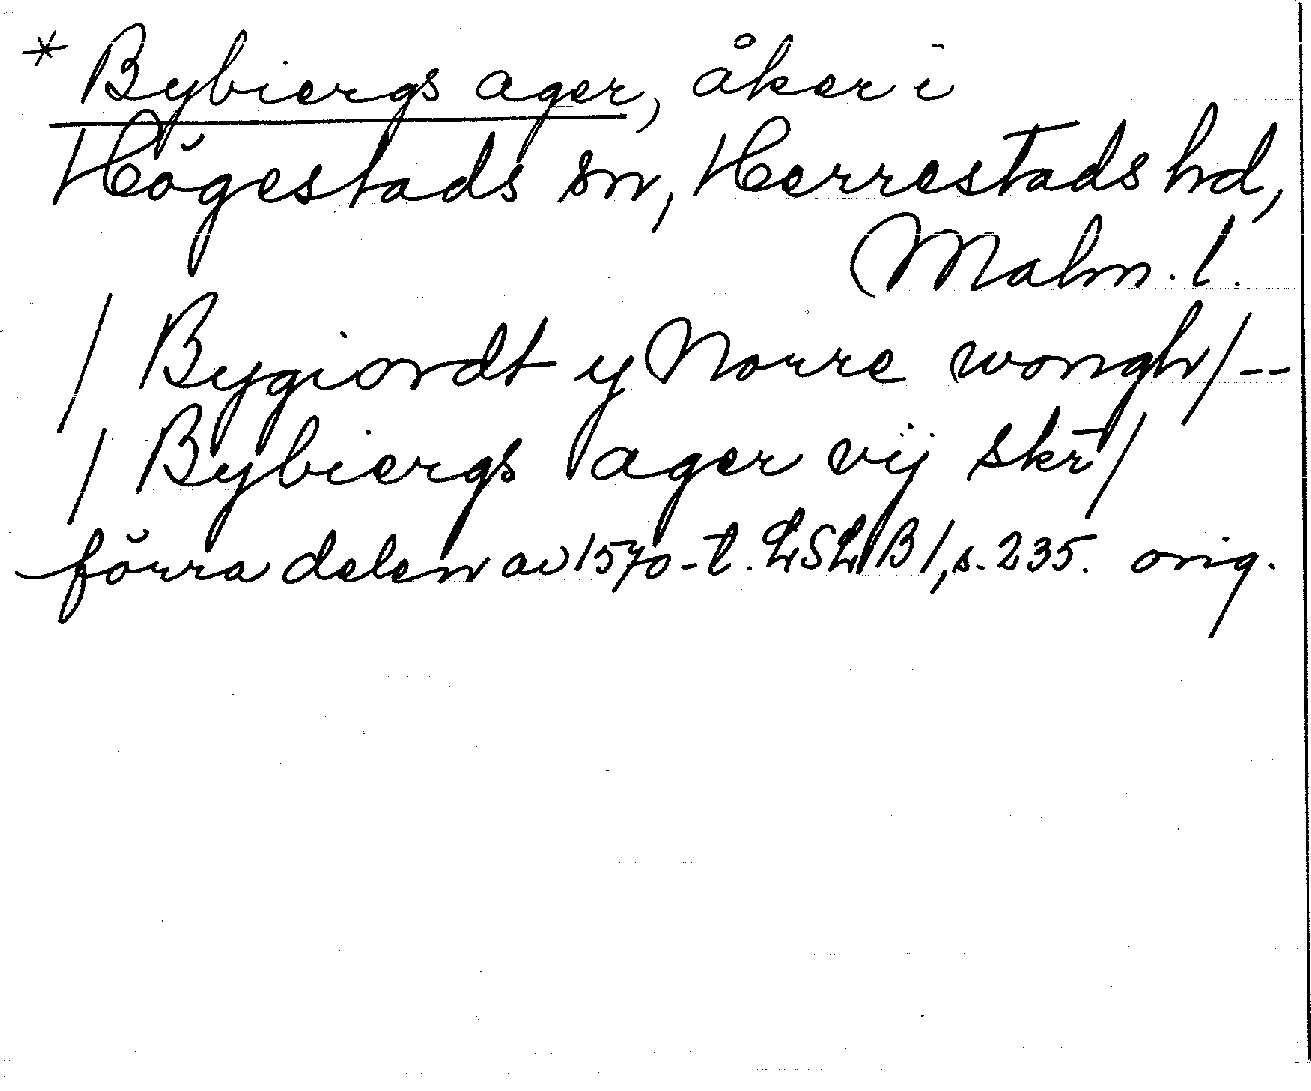 * Bybiergs ager, åker i
Högestads sn, Herrestads hd,
Malm. l.
/ Bygiordt y Norre wongh / --
/ Bybiergs ager vij skr /
förra delen av 1570-t. LSLB 1, s. 235. orig.